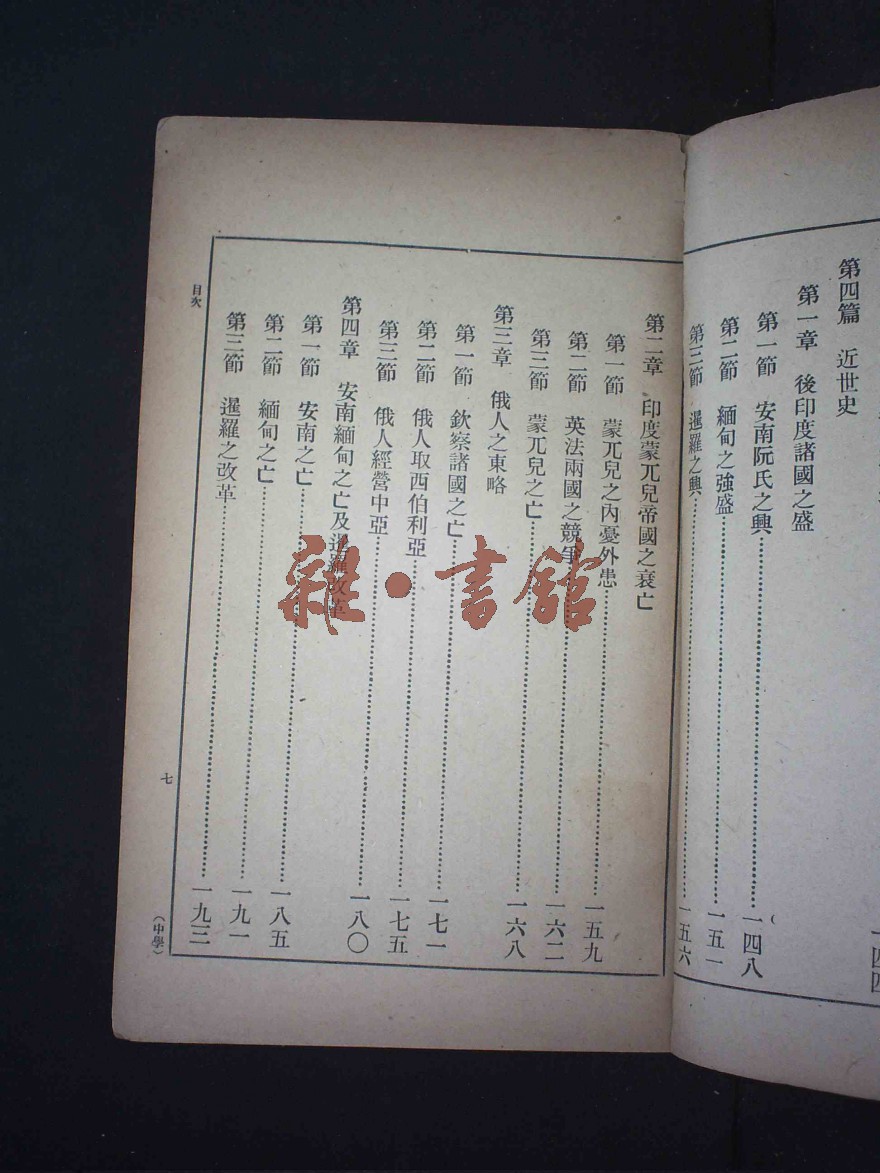 一四四
第四篇 近世史
第一章 後印度諸國之盛
第一節 安南阮氏之興……一四八
第二節 緬甸之強盛……一五一
第三節 暹羅之興……一五六
第二章 印度蒙兀兒帝國之衰亡
第一節 蒙兀兒之內憂外患……一五九
第二節 英法兩國之競爭……一六二
第三節 蒙兀兒之亡……一六八
第三章 俄人之東略
第一節 欽察諸國之亡……一七一
第二節 俄人取西伯利亞……一七五
第三節 俄人經營中亞……一八〇
第四章 安南緬甸之亡及暹羅改革
第一節 安南之亡……一八五
第二節 緬甸之亡……一九一
第三節 暹羅之改革……一九三
目次
七
(中學)
雜·書館